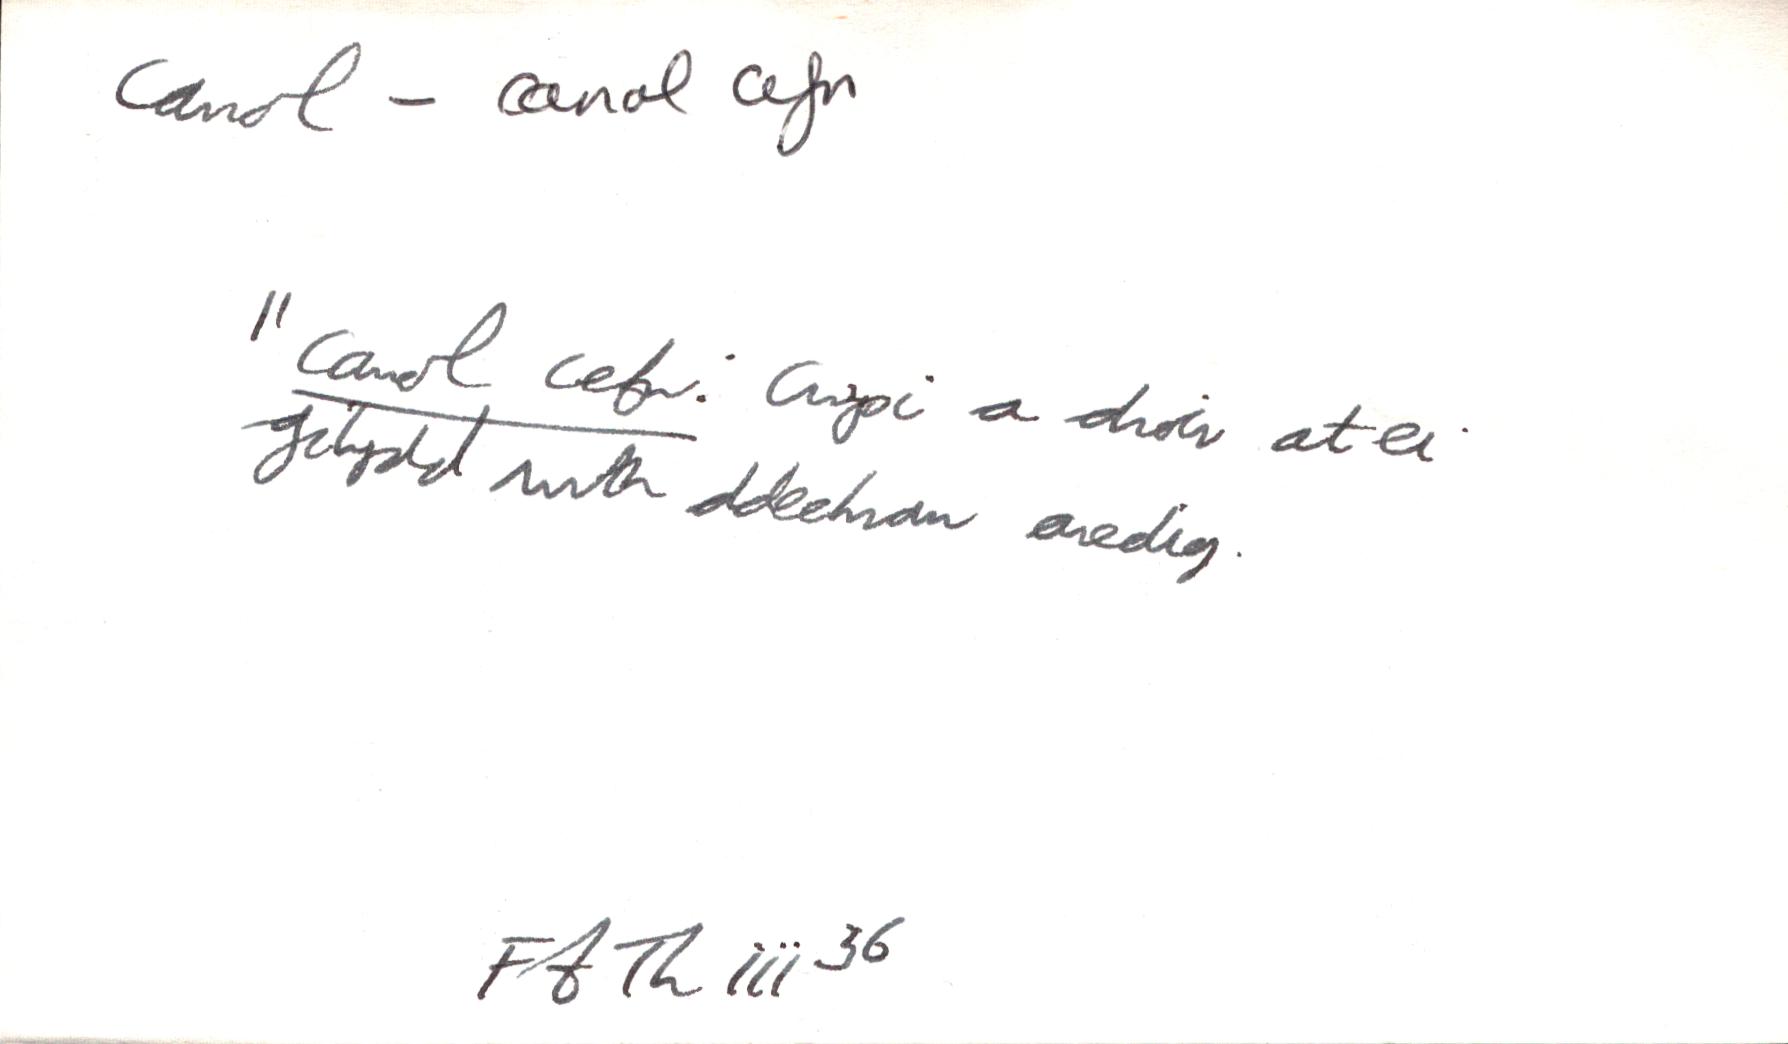 Canol - canol cefn
"Canol cefn: Cwysi a droir at ei
gilydd wrth ddechrau aredig.
Ff Th iii 36